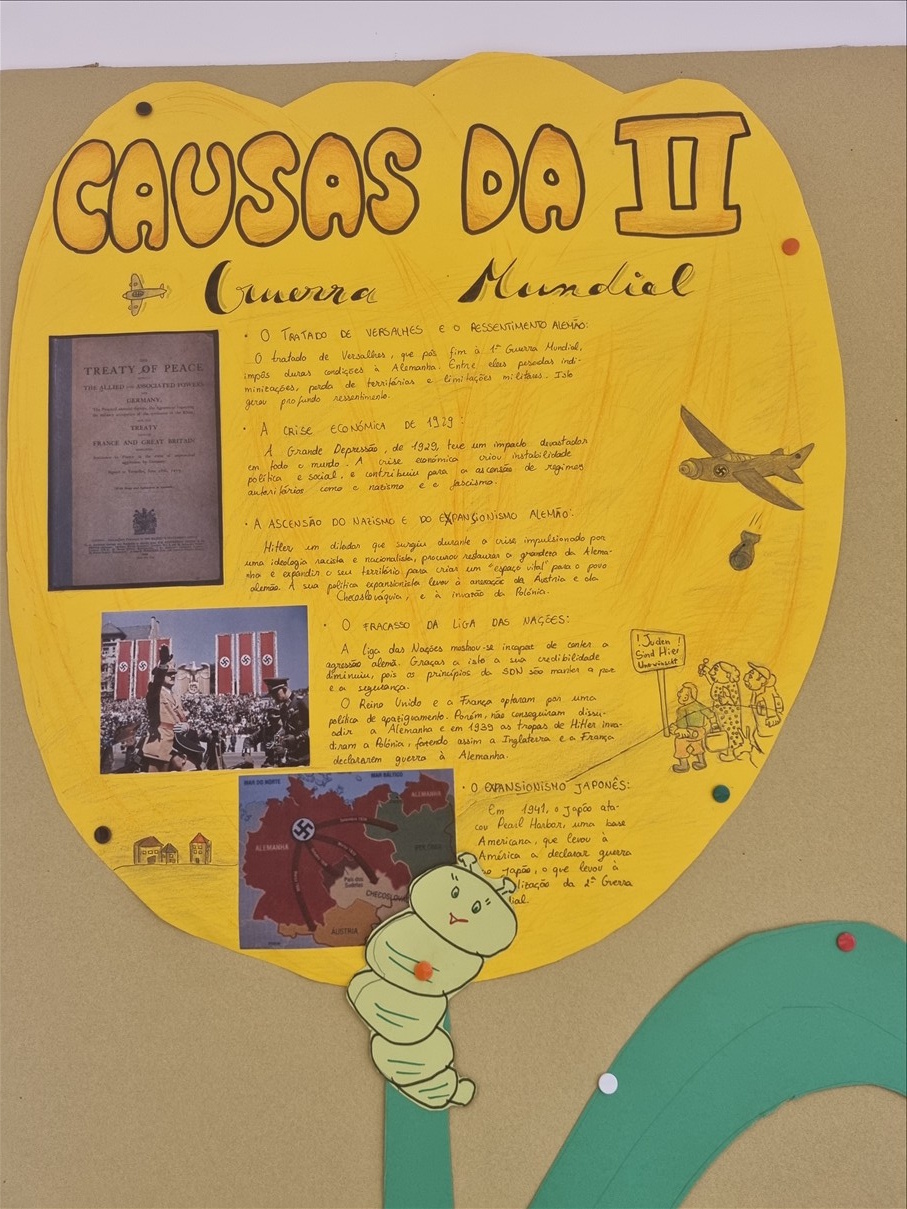 CAUSAS DA II
Guerra Mundial
• O TRATADO DE VERSALHES E O RESSENTIMENTO ALEMÃO:
O tratado de Versalhes, que pôs fim à 1ª Guerra Mundial,
impôs duras condições à Alemanha. Entre elas pesadas indi-
minizações, perda de territórios e limitações militares. Isto
gerou profundo ressentimento.
• A CRISE ECONÓMICA DE 1929:
A Grande Depressão, de 1929, teve um impacto devastador
em todo o mundo. A crise económica criou instabilidade
política e social, e contribuiu para a ascensão de regimes
autoritários como o nazismo e o fascismo.
• A ASCENSÃO DO NAZISMO E DO EXPANSIONISMO ALEMÃO:
Hitler um ditador que surgiu durante a crise impulsionado por
uma ideologia racista e nacionalista, procurou restaurar a grandeza da Alema-
nha e expandir o seu território para criar um "espaço vital" para o povo
alemão. A sua política expansionista levou à anexação da Áustria e da
Checoslováquia, e à invasão da Polónia.
• O FRACASSO DA LIGA DAS NAÇÕES:
A liga das Nações mostrou-se incapaz de conter a
agressão alemã. Graças a isto a sua credibilidade
diminuiu, pois os princípios da SDN são manter a paz
e a segurança.
O Reino Unido e a França optaram por uma
política de apaziguamento. Porém, não conseguiram dissu-
adir a Alemanha e em 1939 as tropas de Hitler inva-
diram a Polónia, fazendo assim a Inglaterra e a França
declararem guerra à Alemanha.
• O EXPANSIONISMO JAPONÊS:
Em 1941, o Japão ata-
cou Pearl Harbor, uma base
Americana, que levou à
América a declarar guerra
ao Japão, o que levou à
lização da 2ª Gverra
dial.
THE
TREATY OF PEACE
THE ALLIED AND ASSOCIATED POWERS
AND
GERMANY,
TREATY
FRANCE AND GREAT BRITAIN
! Juden !
Sind Hier
Unerwünscht
MAR DO NORTE
MAR BÁLTICO
ALEMANHA
ALEMANHA
POLÓNIA
País dos
Sudetas
CHECOSLOV
ÁUSTRIA